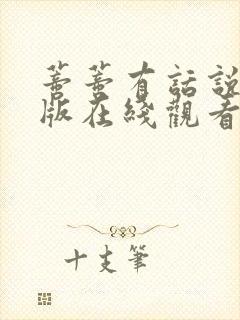 蔷蔷有話說
版在綫觀看
十支筆